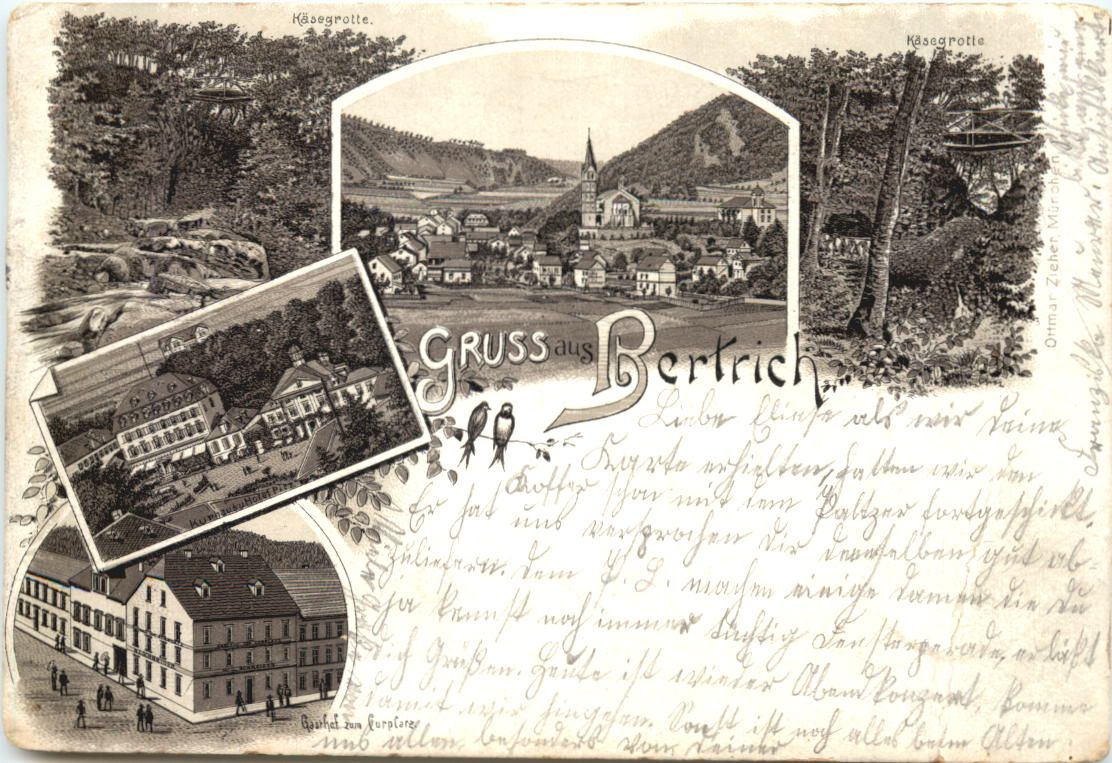 Käsegrotte.
Käsegrotte
Ottmar Zieher, München
GRUSS aus Bertrich
Kurhaus u. Hotel
SCHNEIDER
Gasthof zum Curplatz
Liebe Eliese als wir deine
Karte erhielten, hatten wir den
Koffer schon mit dem Paltzer fortgeschickt.
Er hat uns versprochen dir denselben gut ab-
zuliefern. Dem P. L. machen einige Damen die du
ja kennst noch immer tüchtig Fensterparade, er läßt
dich Grüßen. Heute ist wieder Abendkonzert, komme
damit wir hingehen. Sonst ist noch alles beim Alten.
uns allen, besonders von deiner